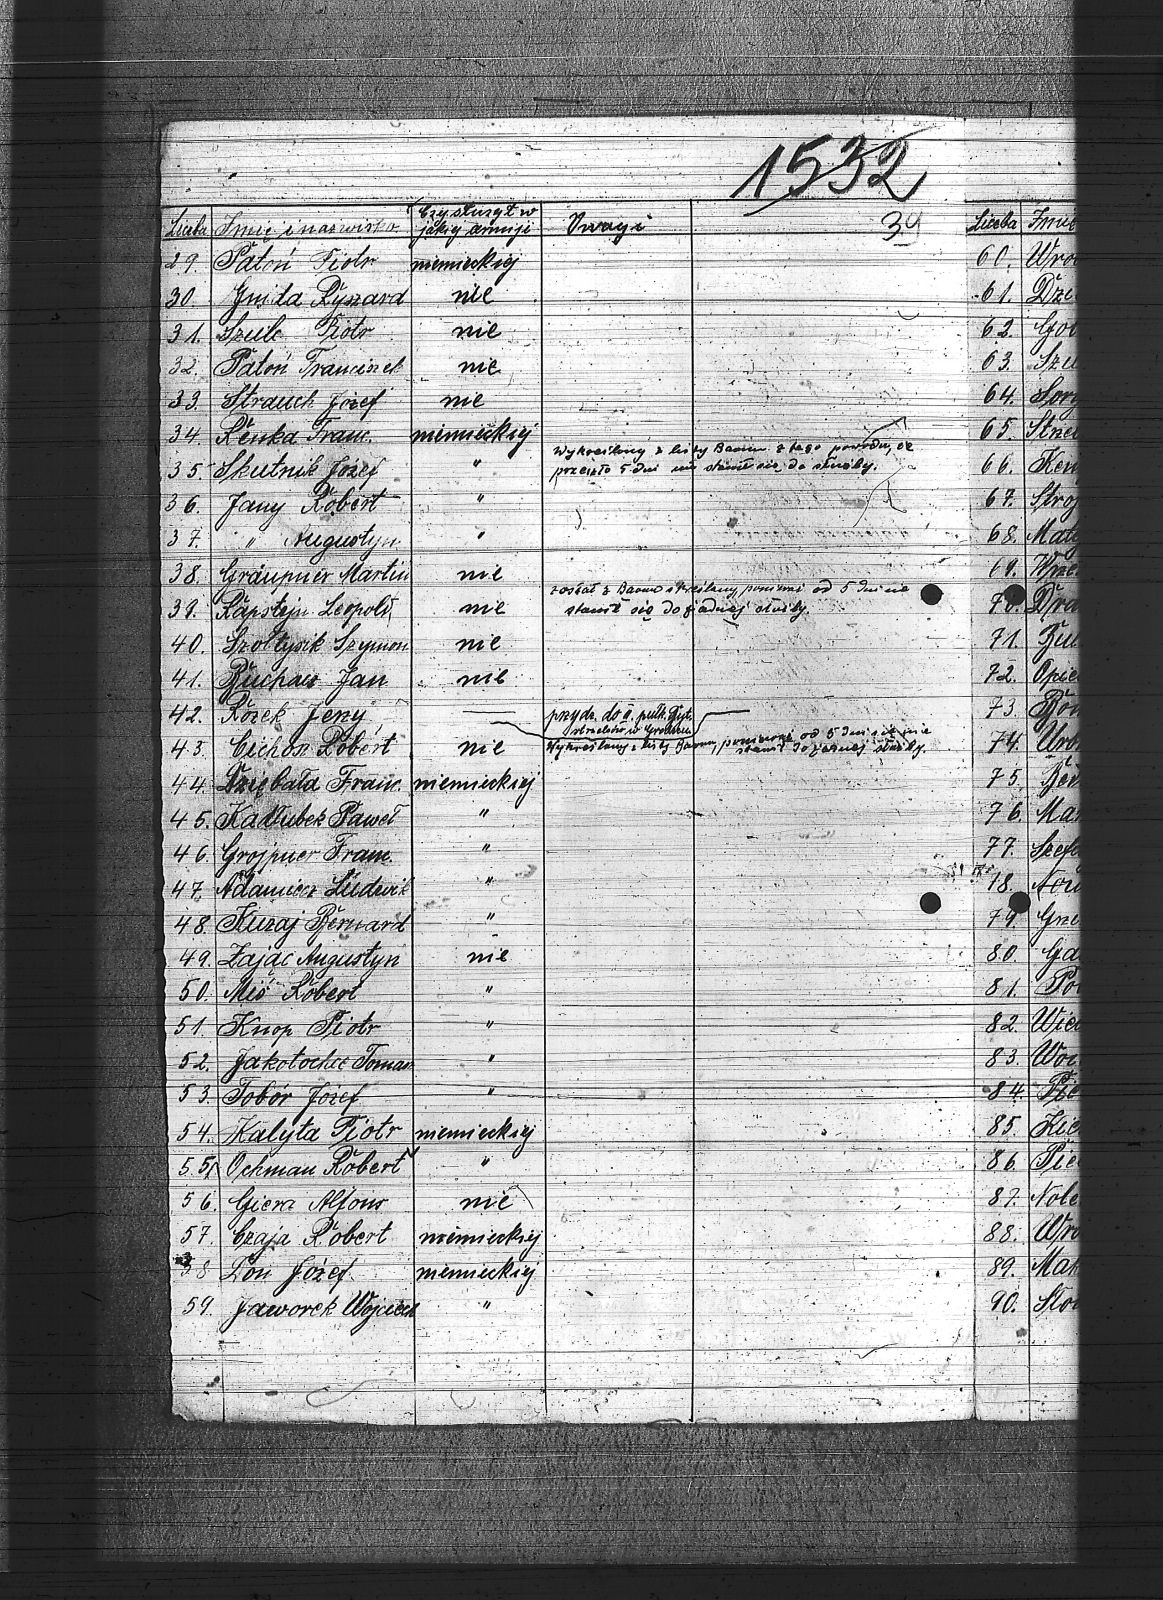 1532
39
Liczba Imię i nazwisko Czy służył w jakiej armji Uwagi
29. Patoń Piotr niemieckiej
30 Gnida Ryszard nie
31. Szulc Piotr nie
32. Patoń Franciszek nie
33. Strauch Józef nie
34. Renka Franc. niemieckiej
35. Skutnik Józef " Wykreślony z listy Baonu z tego powodu, że
przeszło 5 dni nie stawił się do służby.
36. Jany Robert "
37. " Augustyn "
38. Graupner Martin nie
39. Kapstejn Leopold nie został z Baonu skreślany, ponieważ od 5 dni nie
stawił się do żadnej służby.
40. Szołtysik Szymon nie
41. Buchacz Jan nie
42. Rozek Jerzy — przydz. do II. pułk. Byt.
strzelców w
43. Cichon Robert nie Wykreślony z listy Baonu, ponieważ od 5 dni się nie
stawił do żadnej służby.
44. Dziębała Franc. niemieckiej
45. Kadłubek Paweł "
46. Grojpner Franc. "
47. Adamiec Ludwik "
48. Kuzaj Bernard "
49. Zając Augustyn nie
50. Miś Robert "
51. Knop Piotr "
52. Tomasz "
53. Tobór Józef "
54. Kalyta Piotr niemieckiej
55. Ochman Robert "
56. Giera Alfons nie
57. Czaja Robert niemieckiej
58 Łoń Józef niemieckiej
59. Jaworek Wojciech "
Liczba Imię
60. Wro
61. Dze
62. Goł
63. Szu
64. Sory
65. Strze
66. Ken
67. Stroj
68. Mat
69.
70. Dra
71. Bul
72. Opie
73.
74. Uro
75.
76. Mar
77. Szef
78. Now
79. Grze
80. Ga
81. Po
82. Wie
83. Woz
84. Pie
85. Kie
86. Pie
87. Nole
88. Wro
89. Mak
90. Sło